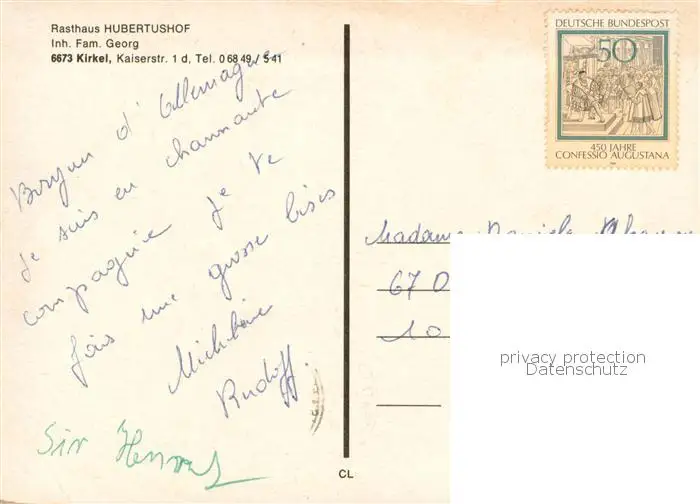 Rasthaus HUBERTUSHOF
Inh. Fam. Georg
6673 Kirkel, Kaiserstr. 1 d, Tel. 0 68 49 / 5 41
d'Allemagne
Je suis en charmante
compagnie je te
fais une grosse bises
Micheline
Rudolf
Sir
CL
DEUTSCHE BUNDESPOST
50
450 JAHRE
CONFESSIO AUGUSTANA
Madame
67
10
privacy protection
Datenschutz